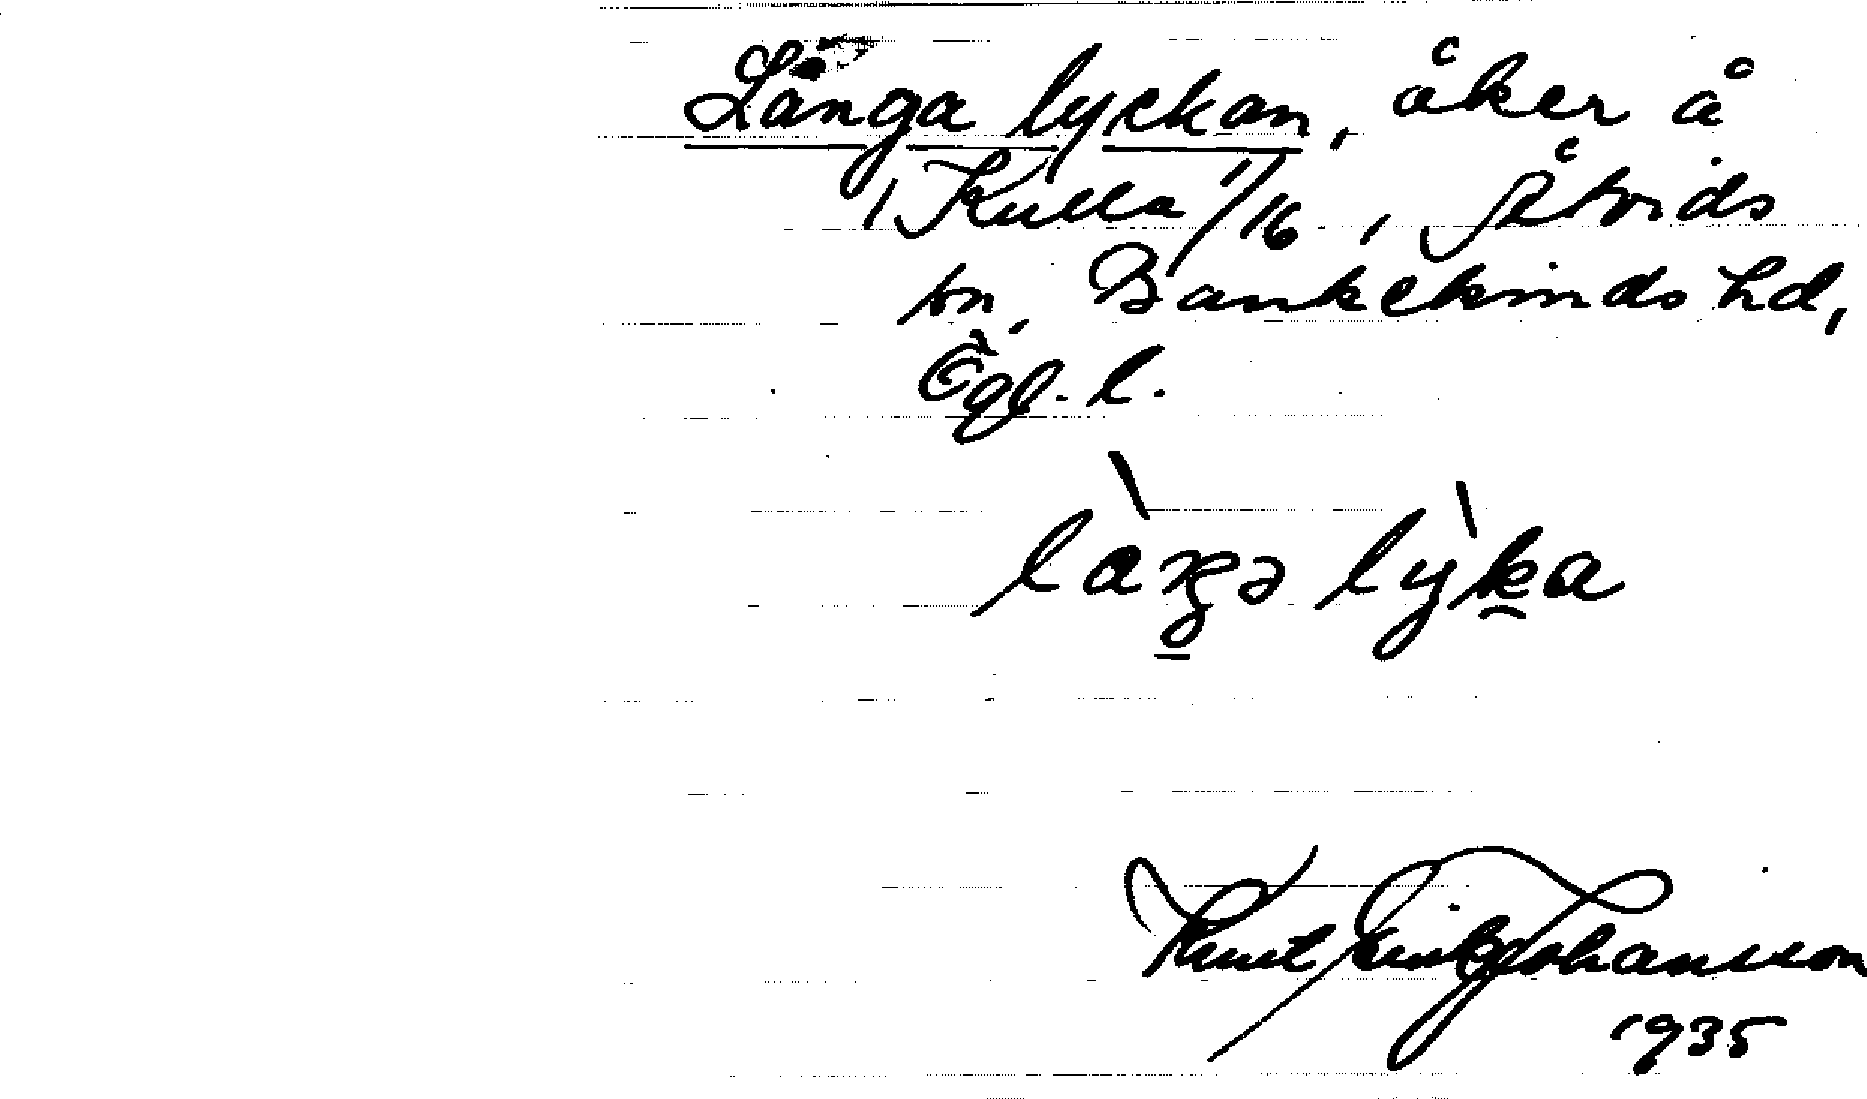 Långa lyckan, åker å
Kulla 1/16, Åtvids
sn, Bankekinds hd,
Ögl. l.
làŋə lỳka
Knut Erik Johansson
1935